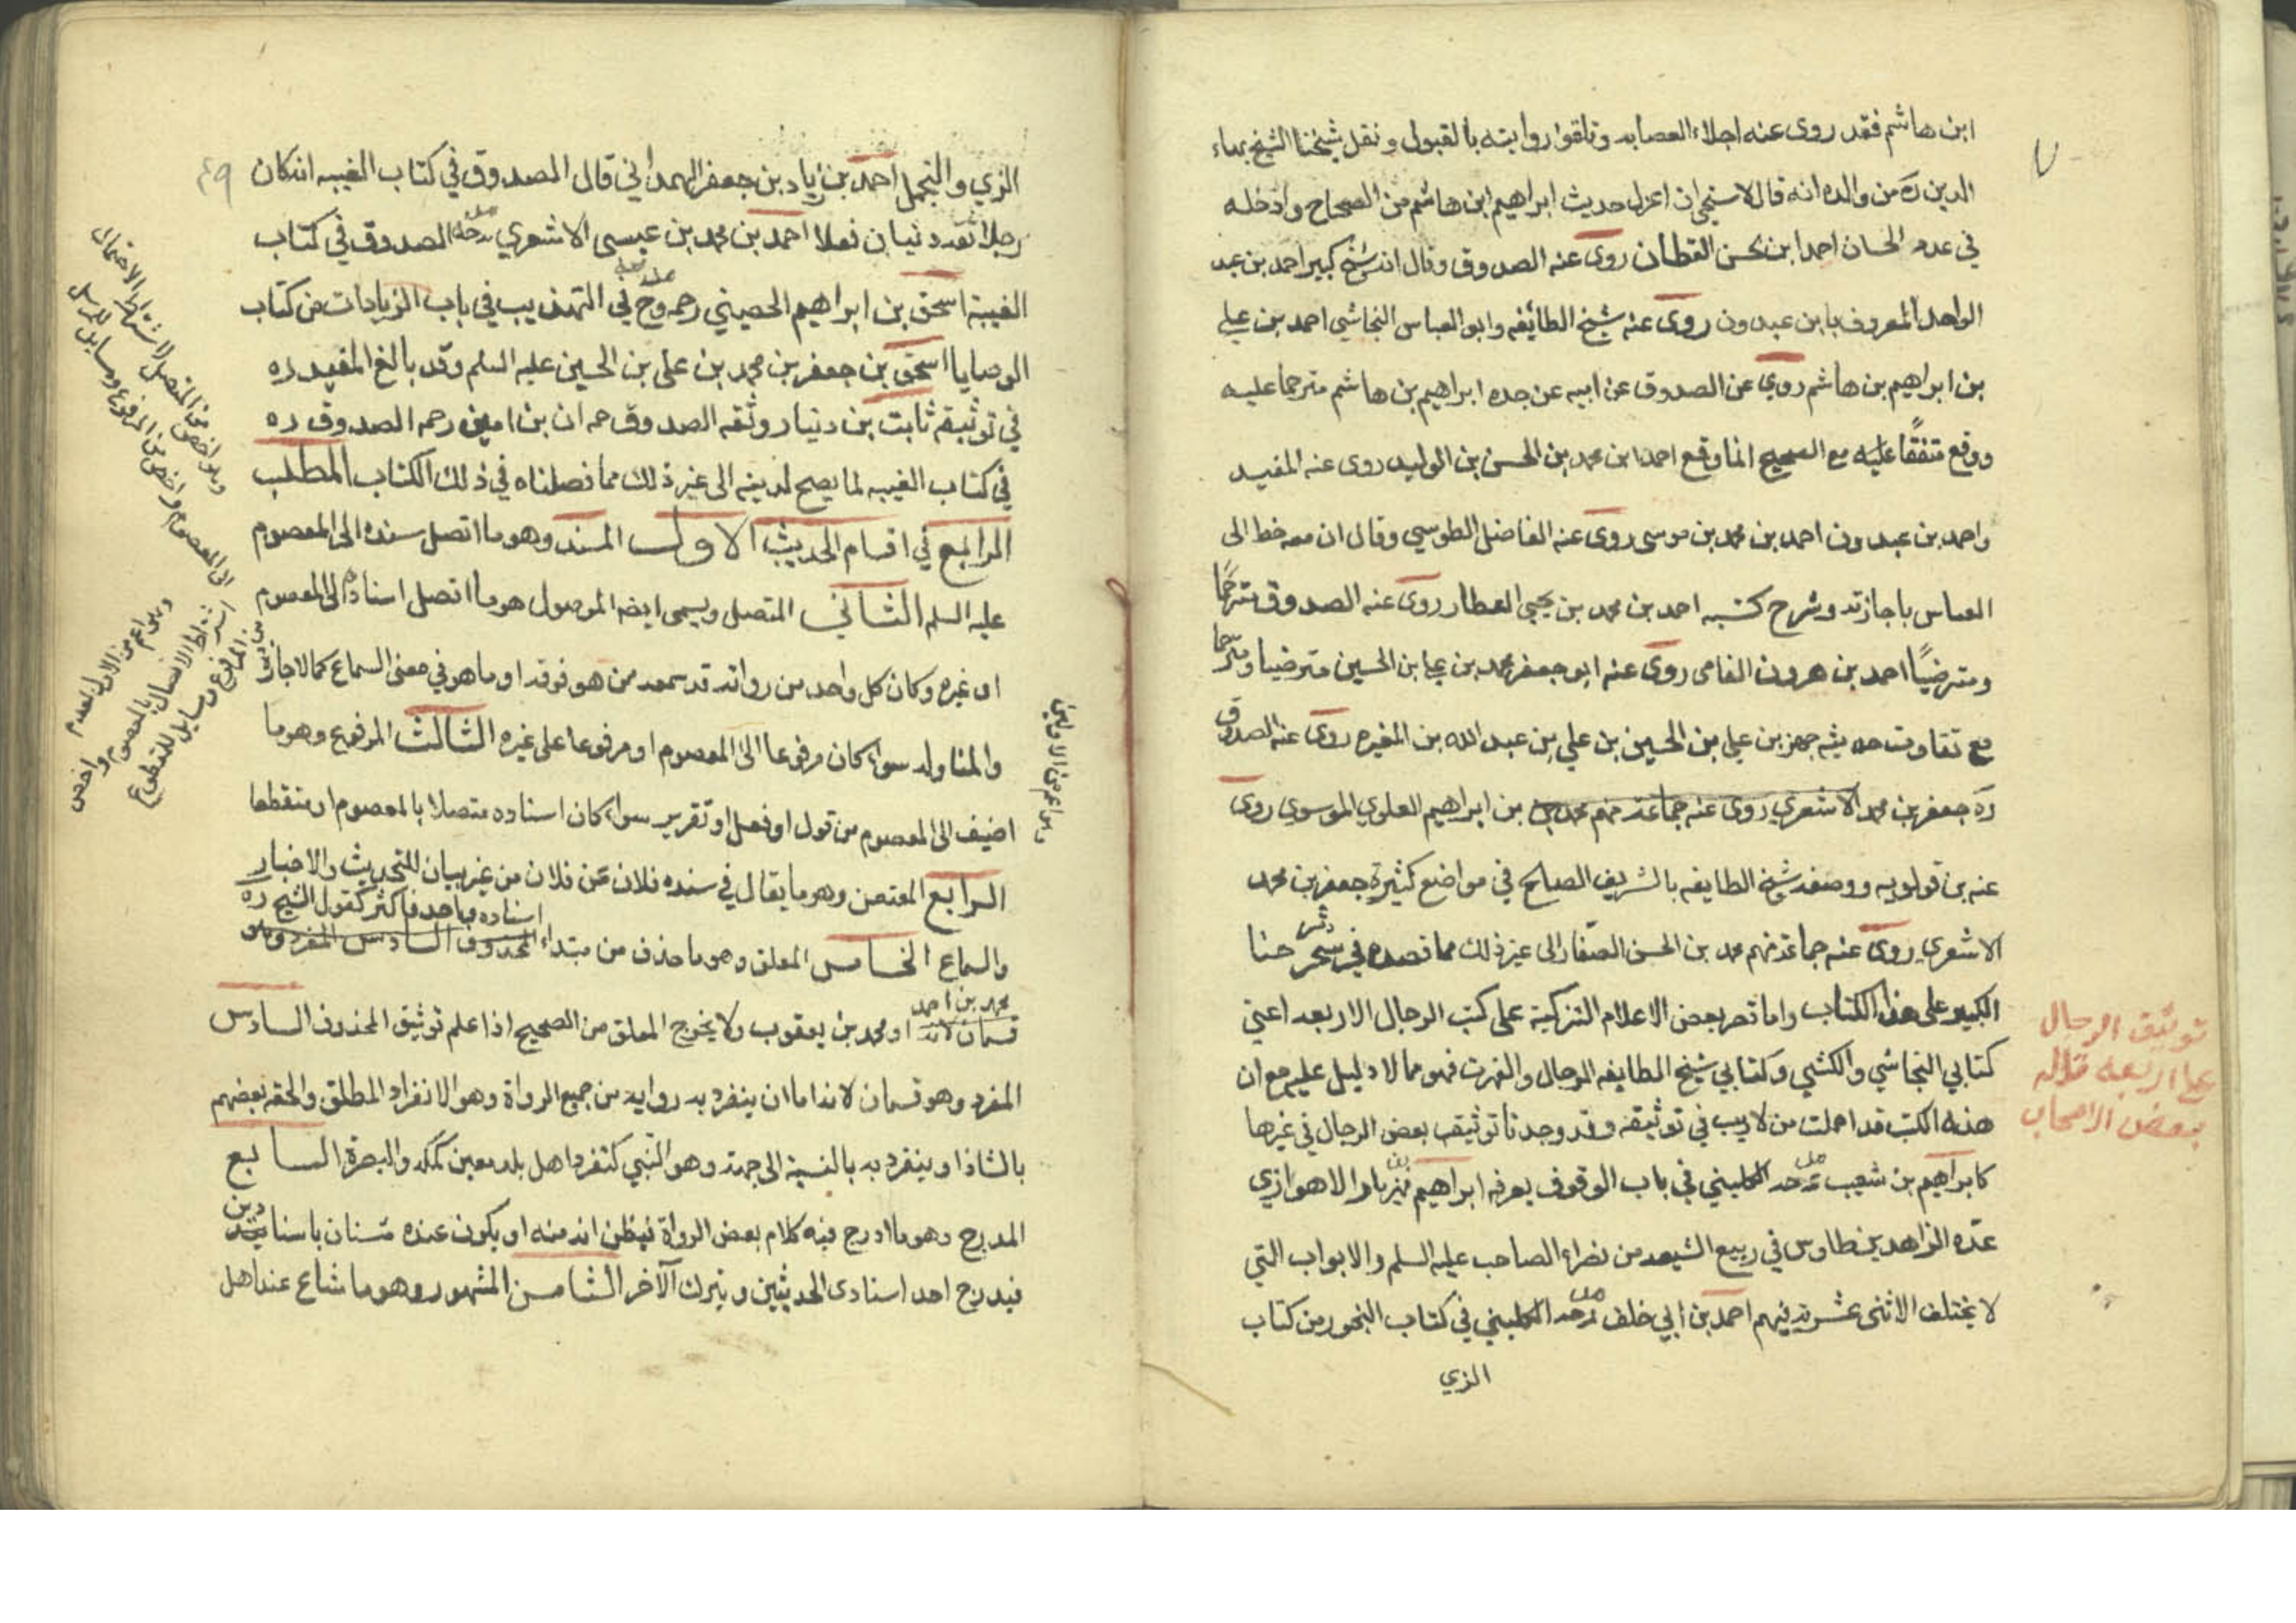 ابن هاشم فقد روى عنه اجلاء العصابه وتلقوا روايته بالقبول ونقل شيخنا الشيخ بهاء
الدين ره من والده انه قال لاستحي ان اعزل حديث ابراهيم ابن هاشم من الصحاح وادخله
في عدد الحسان احمد ابن حسن القطان روى عنه الصدوق وقال انه شيخ كبير احمد بن عبد
الواحد المعروف بابن عبدون روى عنه شيخ الطائفه وابو العباس النجاشي احمد بن علي
بن ابراهيم بن هاشم روى عن الصدوق عن ابيه عن جده ابراهيم بن هاشم مترحما عليه
ووقع متفقا عليه مع الصحيح انما وقع احمد ابن محمد بن الحسن بن الوليد روى عنه المفيد
واحمد بن عبدون احمد بن محمد بن موسى روى عنه الفاضل الطوسي وقال ان معه خط الى
العباس باجازته وشرح كتبه احمد بن محمد بن يحيى العطار روى عنه الصدوق مترحما
ومترضيًا احمد بن هرون الفامى روى عنه ابو جعفر محمد بن علي ابن الحسين مترضيا ومترحما
مع تفاوت حديثه جعفر بن علي بن الحسين بن علي بن عبد الله بن المغيره روى عنه الصدوق
ره جعفر بن محمد الاشعري روى عنه جماعة منهم محمد بن ابراهيم العلوي الموسوي روى
عنه بن قولويه ووصفه شيخ الطايفه بالشريف الصالح في مواضع كثيرة جعفر بن محمد
الاشعري روى عنه جماعة منهم محمد بن الحسن الصفار الى غير ذلك مما في شرحنا
الكبير على هذا الكتاب واما قصر بعض الاعلام التزكية على كتب الرجال الاربعه اعني
كتابي النجاشي والكشي وكتابي شيخ الطايفه الرجال والفهرت فهو مما لا دليل عليه مع ان
هذه الكتب قد اهملت من لا ريب في توثيقه وقد وجدنا توثيق بعض الرجال في غيرها
كابراهيم بن شعيب مدحه الكليني في باب الوقوف بعرفه ابراهيم بن مهزيار الاهوازي
عدّه الزاهد بن طاوس في ربيع الشيعه من نضراء الصاحب عليه السلم والابواب التي
لا يختلف الاثنى عشريه فيهم احمد بن ابي خلف مدحه الكليني في كتاب البخور من كتاب
الزي
توثيق الرجال
على اربعه قاله
بعض الاصحاب
الزي والتجمل احمد بن زياد بن جعفر الهمداني قال المصدوق في كتاب الغيبه انه كان
رجلا ثقه دنيا فاضلا احمد بن محمد بن عيسى الاشعري مدحه المصدوق في كتاب
الغيبة اسحق بن ابراهيم الحصيني رحمه في التهذيب في باب الزيادات من كتاب
الوصايا اسحق بن جعفر بن محمد بن علي بن الحسين عليه السلم وقد بالغ المفيد ره
في توثيقه ثابت بن دنيار وثقه الصدوق حمران بن اعين رحمه الصدوق ره
في كتاب الغيبه لما يصح لدينه الى غير ذلك مما فصلناه في ذلك الكتاب المطلب
الرابع في اقسام الحديث الاول المسند وهو ما اتصل سنده الى المعصوم
عليه السلم الثاني المتصل ويسمى ايضا الموصول هو ما اتصل اسناده الى المعصوم
او غيره وكان كل واحد من رواته قد سمعه من هو فوقه او ما هو في معنى السماع كالاجازة
والمناوله سواء كان مرفوعا الى المعصوم او مرفوعا على غيره الثالث المرفوع وهو ما
اضيف الى المعصوم من قول او فعل او تقرير سواء كان اسناده متصلا بالمعصوم او منقطعا
الرابع المعتعن وهو ما يقال في سنده فلان عن فلان من غير بيان للتحديث والاخبار
والسماع الخامس المعلق وهو ما حذف من مبتداء اسناده واحد فاكثر كقول الشيخ ره
محمد بن احمد او محمد بن يعقوب ولا يخرج المعلق من الصحيح اذا علم توثيق المحذوف السادس
المفرد وهو قسمان لانه اما ان ينفرد به راويه من جميع الرواة وهو الانفراد المطلق والحقه بعضهم
بالشاذ او ينفرد به بالنسبة الى جهة وهو النسبي كتفرد اهل بلد معين كمكه والبصرة السابع
المدرج وهو ما ادرج فيه كلام بعض الرواة فيظن انه منه او يكون عنده متنان باسنادين
فيدرج احد اسنادى الحديثين ويترك الآخر الثامن المشهور وهو ما شاع عند اهل